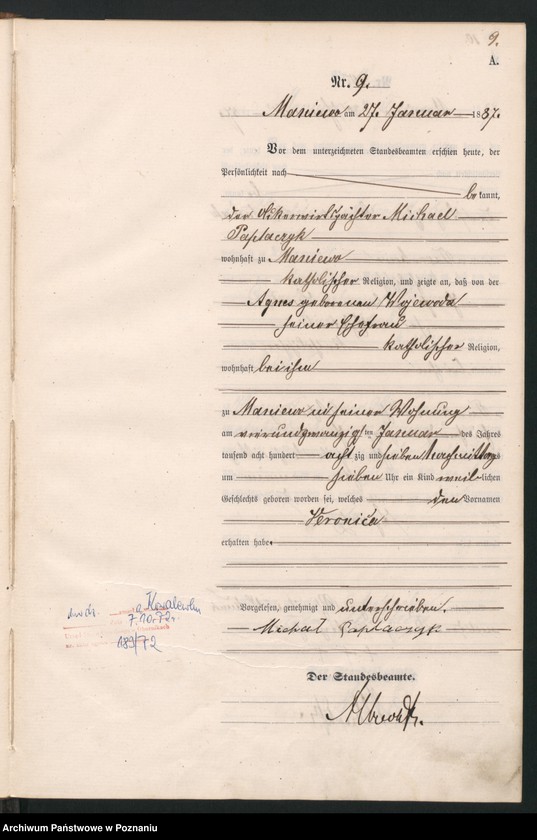 9.
A.
Nr. 9.
Maniewo am 27. Januar 1887.
Vor dem unterzeichneten Standesbeamten erschien heute, der
Persönlichkeit nach
bekannt,
der Ackerwirt Michael
Paplaczyk
wohnhaft zu Maniewo
katholischer Religion, und zeigte an, daß von der
Agnes geborenen Wojewoda
seiner Ehefrau
katholischer Religion,
wohnhaft bei ihm
zu Maniewo in seiner Wohnung
am vierundzwanzigsten Januar des Jahres
tausend acht hundert achtzig und sieben Nachmittags
um sieben Uhr ein Kind weiblichen
Geschlechts geboren worden sei, welches den Vornamen
Veronica
erhalten habe.
Vorgelesen, genehmigt und unterschrieben.
Michał Paplaczyk
Der Standesbeamte.
Albrecht.
7.10.72r.
189/72
Archiwum Państwowe w Poznaniu